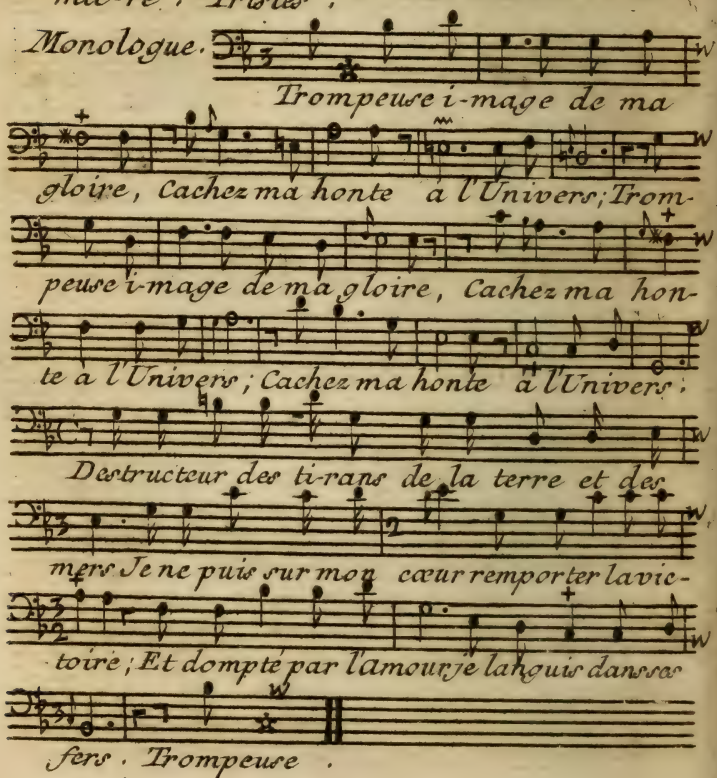 Tristes .
Monologue.
Trompeuse i-mage de ma
gloire, Cachez ma honte à l'Univers; Trom-
peuse i-mage de ma gloire, Cachez ma hon-
te à l'Univers; Cachez ma honte à l'Univers.
Destructeur des ti-rans de la terre et des
mers Je ne puis sur mon cœur remporter la vic-
toire; Et dompté par l'amour je languis dans ses
fers. Trompeuse .